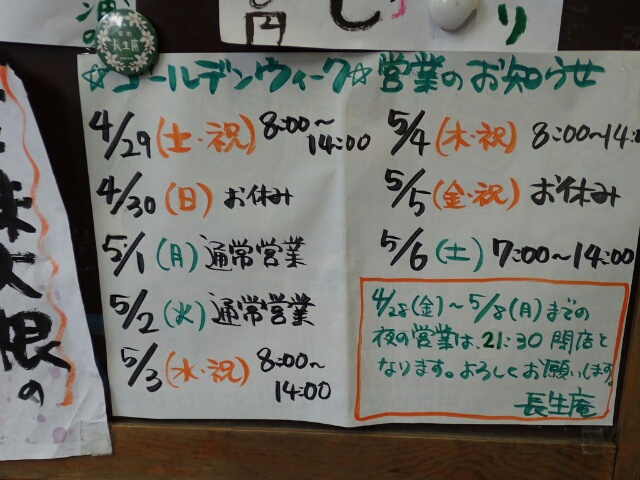 長生庵
☆ゴールデンウィーク☆営業のお知らせ
4/29(土・祝) 8:00〜14:00
4/30(日) お休み
5/1(月) 通常営業
5/2(火) 通常営業
5/3(水・祝) 8:00〜14:00
5/4(木・祝) 8:00〜14:0
5/5(金・祝) お休み
5/6(土) 7:00〜14:00
4/28(金)〜5/8(月)までの
夜の営業は、21:30閉店と
なります。よろしくお願いします。
長生庵
大根の
円
り